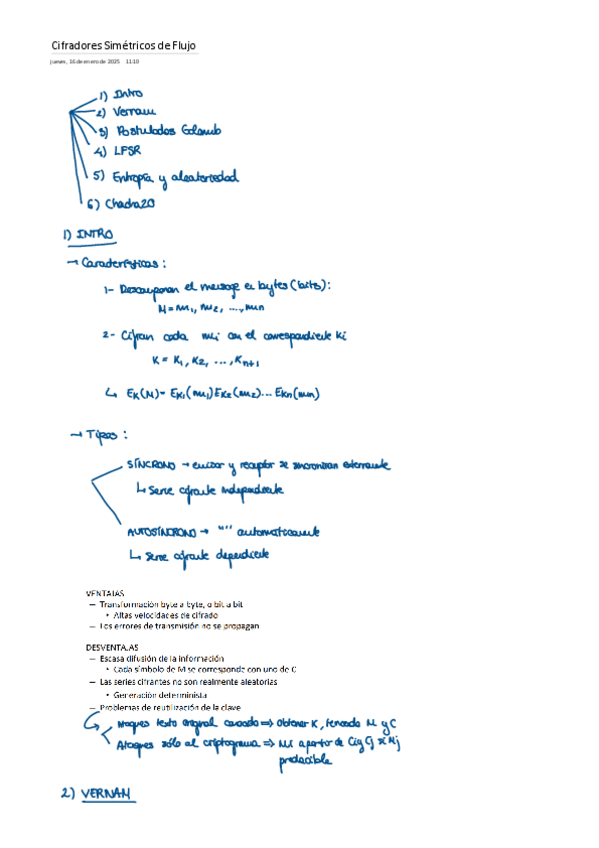 Cifradores Simétricos de Flujo
jueves, 16 de enero de 2025 11:10
1) Intro
2) Vernam
3) Postulados Golomb
4) LFSR
5) Entropía y aleatoriedad
6) Chacha20
1) INTRO
→ Características:
1- Descomponen el mensaje en bytes (bits):
M = m1, m2, ..., mn
2- Cifran cada mi con el correspondiente ki
K = K1, K2, ..., Kn+1
↳ EK(M) = EK1(m1) EK2(m2)... EKn(mn)
→ Tipos:
SÍNCRONO → emisor y receptor se sincronizan externamente
↳ Serie cifrante independiente
AUTOSÍNCRONO → "" automáticamente
↳ Serie cifrante dependiente
VENTAJAS
– Transformación byte a byte, o bit a bit
• Altas velocidades de cifrado
– Los errores de transmisión no se propagan
DESVENTAJAS
– Escasa difusión de la información
• Cada símbolo de M se corresponde con uno de C
– Las series cifrantes no son realmente aleatorias
• Generación determinista
– Problemas de reutilización de la clave
Ataques texto original conocido => Obtener K, teniendo M y C
Ataques sólo al criptograma => Mi a partir de Ci y Cj si Mj
predecible
2) VERNAM